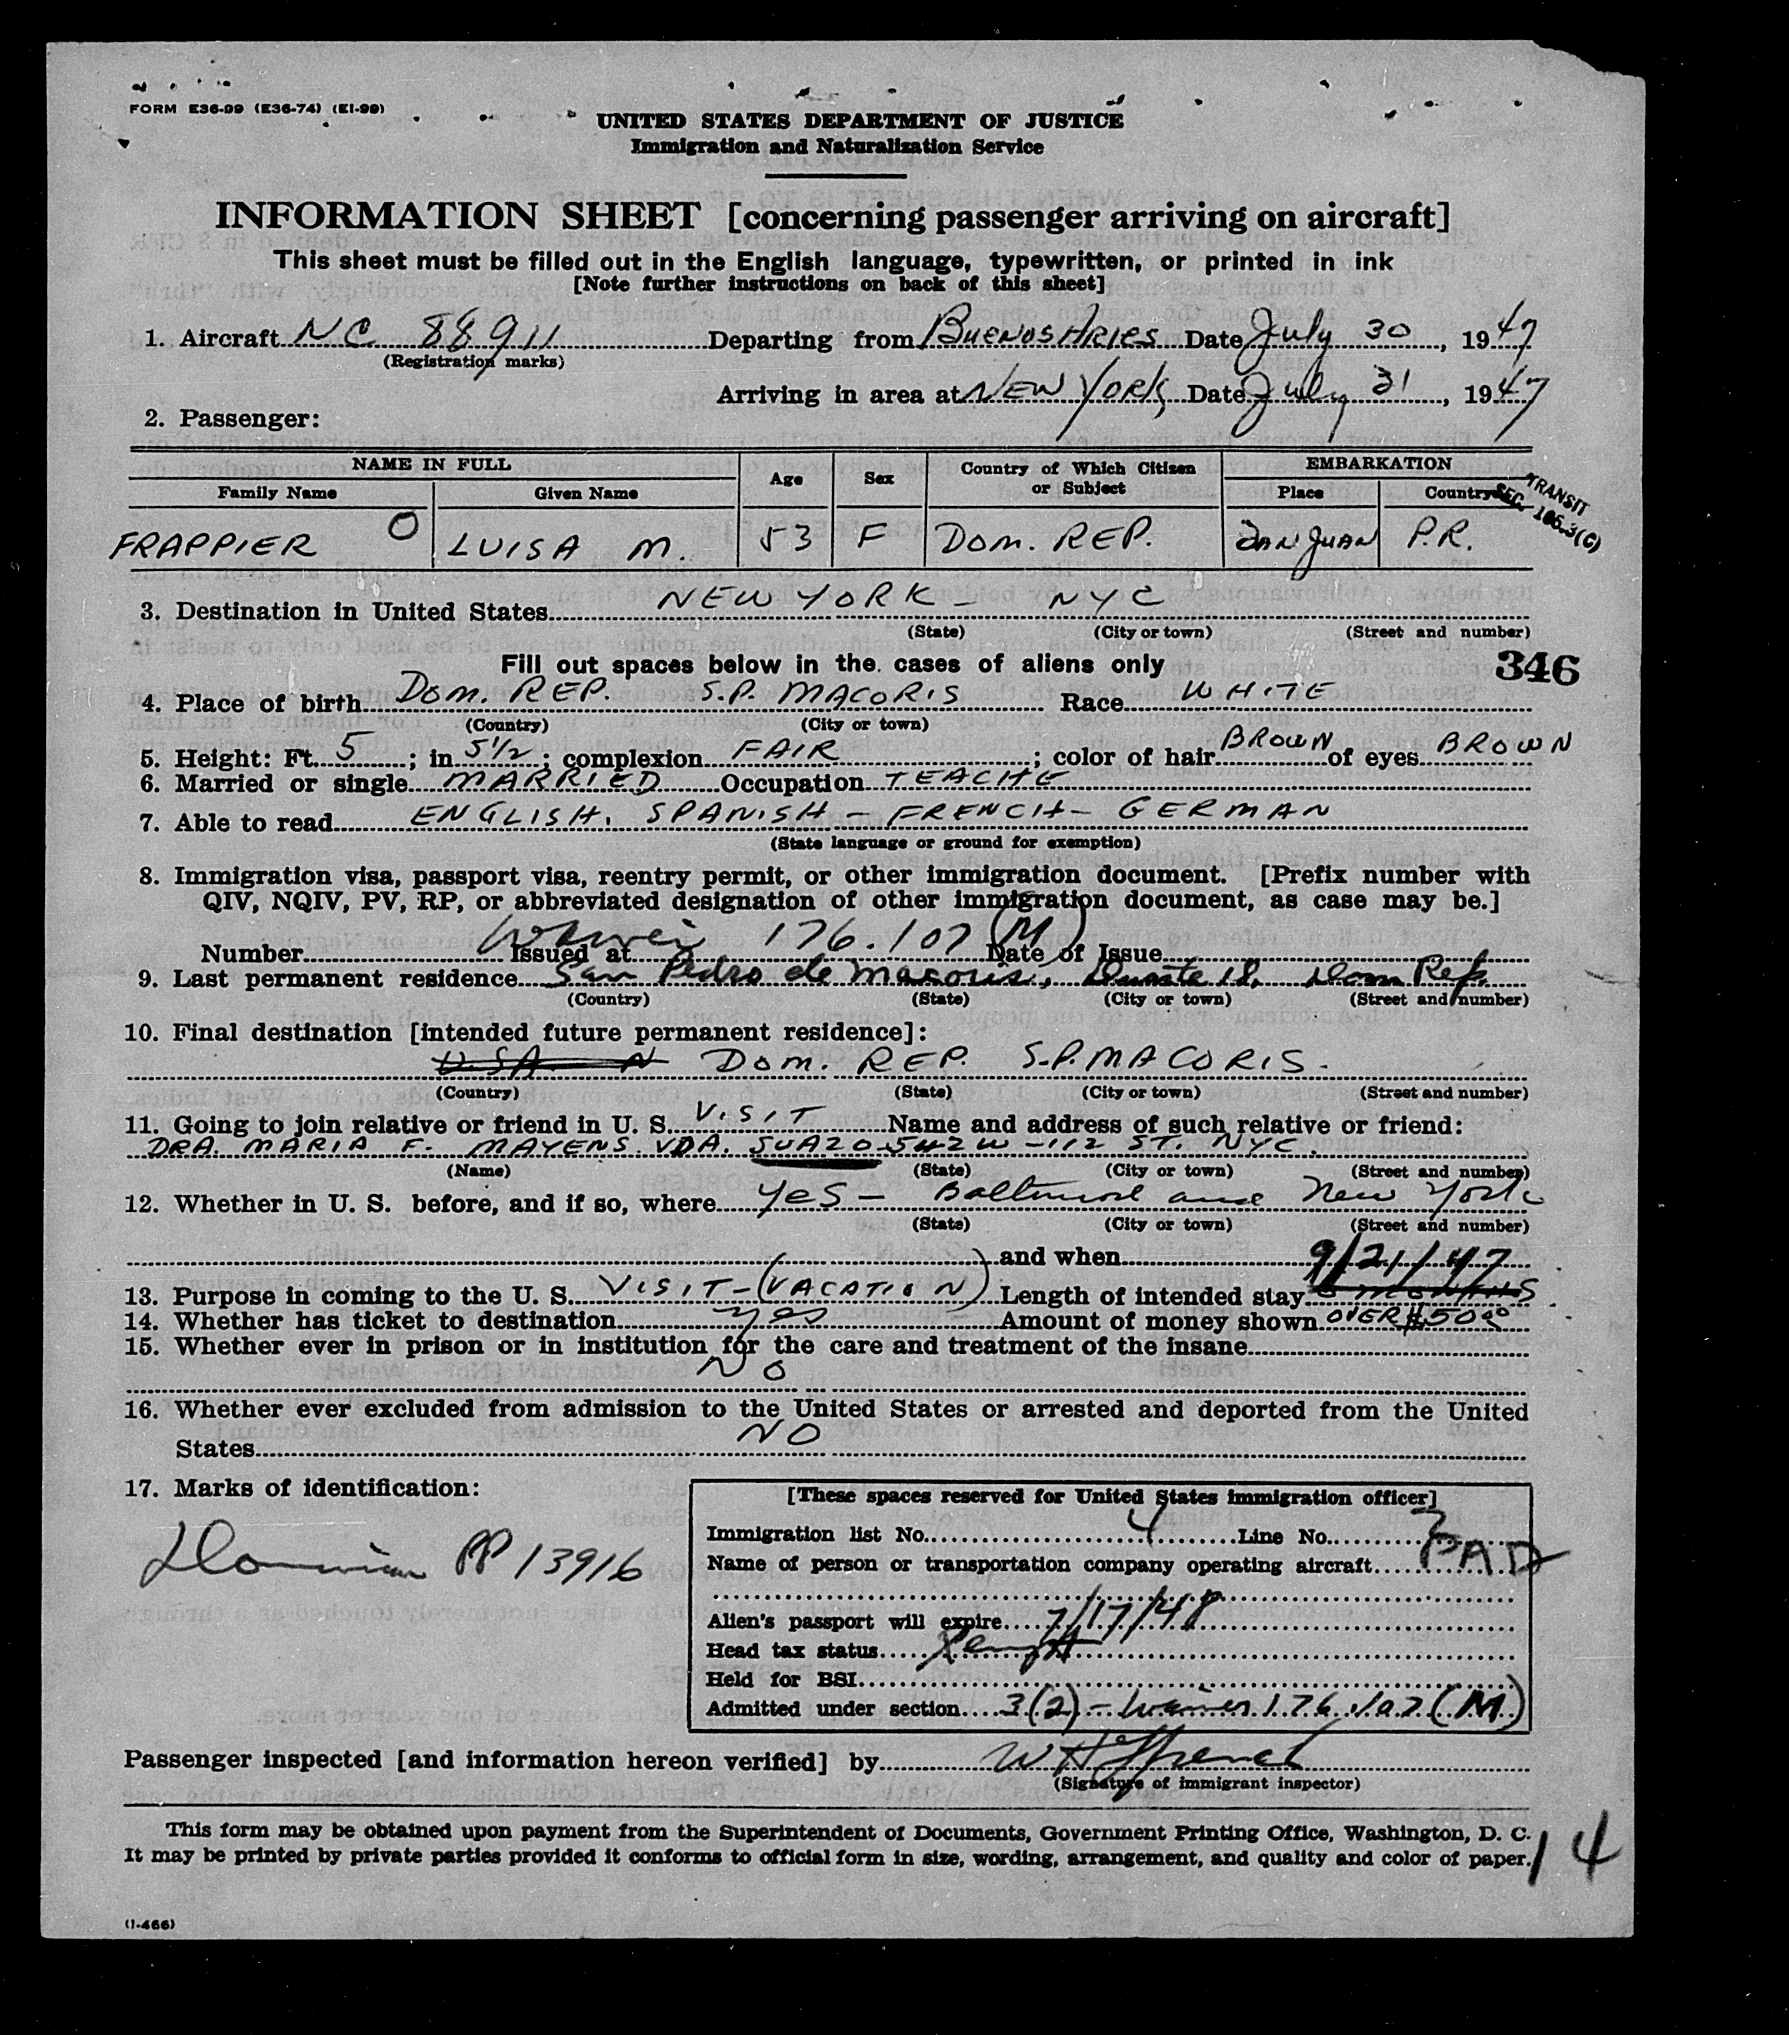 FORM E36-99 (E36-74) (EI-99)
UNITED STATES DEPARTMENT OF JUSTICE
Immigration and Naturalization Service
INFORMATION SHEET [concerning passenger arriving on aircraft]
This sheet must be filled out in the English language, typewritten, or printed in ink
[Note further instructions on back of this sheet]
1. Aircraft NC 88911 Departing from BUENOS ARIES Date July 30, 1947
(Registration marks)
Arriving in area at NEW YORK Date July 31, 1947
2. Passenger:
NAME IN FULL Age Sex Country of Which Citizen or Subject EMBARKATION
Family Name Given Name Place Country
TRANSIT
SEC. 165.3(C)
FRAPPIER O LUISA M. 53 F DOM. REP. SAN JUAN P.R.
3. Destination in United States NEW YORK - NYC
(State) (City or town) (Street and number)
Fill out spaces below in the cases of aliens only
346
4. Place of birth DOM. REP. S.P. MACORIS Race WHITE
(Country) (City or town)
5. Height: Ft. 5; in 5 1/2; complexion FAIR; color of hair BROWN of eyes BROWN
6. Married or single MARRIED Occupation TEACHE
7. Able to read ENGLISH, SPANISH - FRENCH - GERMAN
(State language or ground for exemption)
8. Immigration visa, passport visa, reentry permit, or other immigration document. [Prefix number with
QIV, NQIV, PV, RP, or abbreviated designation of other immigration document, as case may be.]
Number Waiver Issued at 176.107 (M) Date of Issue
9. Last permanent residence San Pedro de Macoris, Duarte 18, Dom Rep.
(Country) (State) (City or town) (Street and number)
10. Final destination [intended future permanent residence]:
USA N DOM. REP. S.P. MACORIS.
(Country) (State) (City or town) (Street and number)
11. Going to join relative or friend in U. S. VISIT Name and address of such relative or friend:
DRA. MARIA F. MAYENS VDA. SUAZO 542 W - 112 ST. NYC.
(Name) (State) (City or town) (Street and number)
12. Whether in U. S. before, and if so, where Yes - Baltimore and New York
(State) (City or town) (Street and number)
and when
9/21/47
13. Purpose in coming to the U. S. VISIT - (VACATION) Length of intended stay MONTHS
14. Whether has ticket to destination yes Amount of money shown OVER $50 00
15. Whether ever in prison or in institution for the care and treatment of the insane
NO
16. Whether ever excluded from admission to the United States or arrested and deported from the United
States NO
17. Marks of identification:
Dominican PP 13916
[These spaces reserved for United States immigration officer]
Immigration list No. 4 Line No. 7
Name of person or transportation company operating aircraft PAA
Alien's passport will expire 7/17/48
Head tax status Exempt
Held for BSI
Admitted under section 3(2) - Waiver 176.107 (M)
Passenger inspected [and information hereon verified] by
(Signature of immigrant inspector)
This form may be obtained upon payment from the Superintendent of Documents, Government Printing Office, Washington, D. C.
It may be printed by private parties provided it conforms to official form in size, wording, arrangement, and quality and color of paper.
14
(I-466)